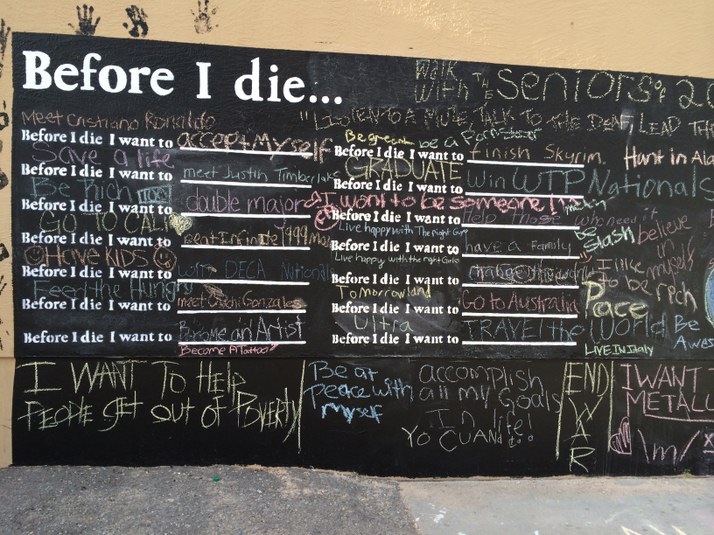 Before I die...
Walk
with The seniors 20
Meet Cristiano Ronaldo
"LISTEN TO A MUTE, TALK TO THE DEAF, LEAD THE
Before I die I want to accept Myself
Save a life
Before I die I want to meet Justin Timberlake
Be Rich
Before I die I want to double major
GO TO CALI
Before I die I want to
HAVE KIDS
Before I die I want to win DECA Nationals
Feed the Hungry
Before I die I want to meet Chachi Gonzales
Before I die I want to Become an Artist
Become A Tattoo
Be great be a
Before I die I want to finish Skyrim
GRADUATE
Before I die I want to Win WTP Nationals
I want to be someone!
Before I die I want to Help those who need it
Live happy with The right Guy
Before I die I want to have a Family
Live happy with the right Girl
Before I die I want to change the world
Tomorrowland
Before I die I want to Go to Australia
Ultra
Before I die I want to TRAVEL the World
Hunt in Ala
be
Slash
believe
in
myself
I like
to be rich
Pace
Be
Awes
LIVE IN Italy
I WANT TO HELP
PEOPLE GET OUT OF POVERTY
Be at
peace with
myself
accomplish
all my Goals
In life!
YO CUANDO
END
WAR
I WANT
METALL
\m/